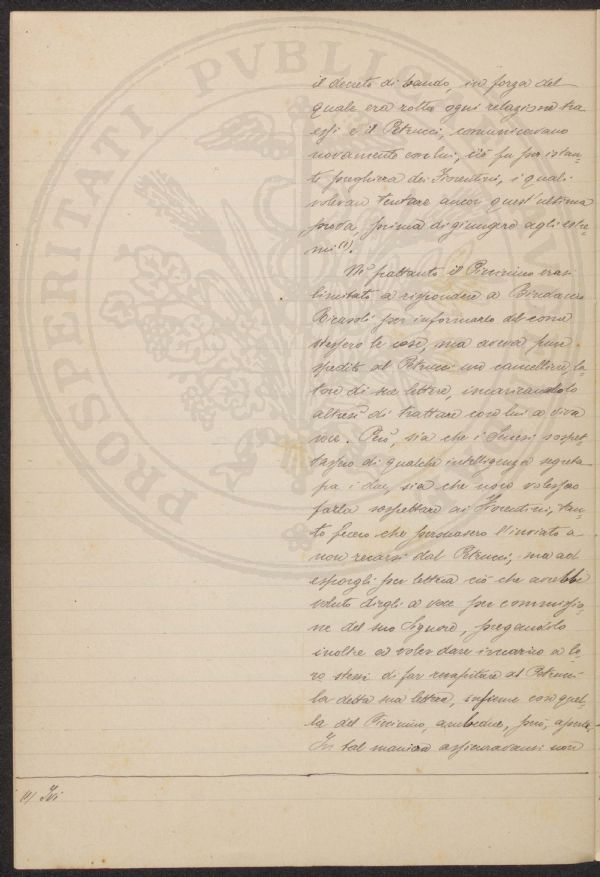 PROSPERITATI PVBLICAE
il decreto di bando, in forza del
quale era rotta ogni relazione tra
essi e il Petrucci, comunicavano
novamente con lui, ciò fu per istan„
te preghiera dei Fiorentini, i quali
volevan tentare ancor quest'ultima
prova, prima di giungere agli estre„
mi (1).
Nè frattanto il Piccinino erasi
limitato a rispondere a Bindaccio
Ricasoli per informarlo del come
stessero le cose, ma aveva pure
spedito al Petrucci un cancelliere, la„
tore di sua lettera, incaricandolo
altresì di trattare con lui a viva
voce. Però, sia che i Senesi sospet„
tassero di qualche intelligenza segreta
fra i due, sia che non volessero
farla sospettare ai Fiorentini, tan„
to fecero che persuasero l'inviato a
non recarsi dal Petrucci, ma ad
esporgli per lettera ciò che avrebbe
voluto dirgli a voce per commissio„
ne del suo Signore, pregandolo
inoltre a voler dare incarico a lo„
ro stessi di far recapitare al Petrucci
la detta sua lettera, insieme con quel„
la del Piccinino, ambedue, però, aperte.
In tal maniera assicuravansi non
(1) Ivi